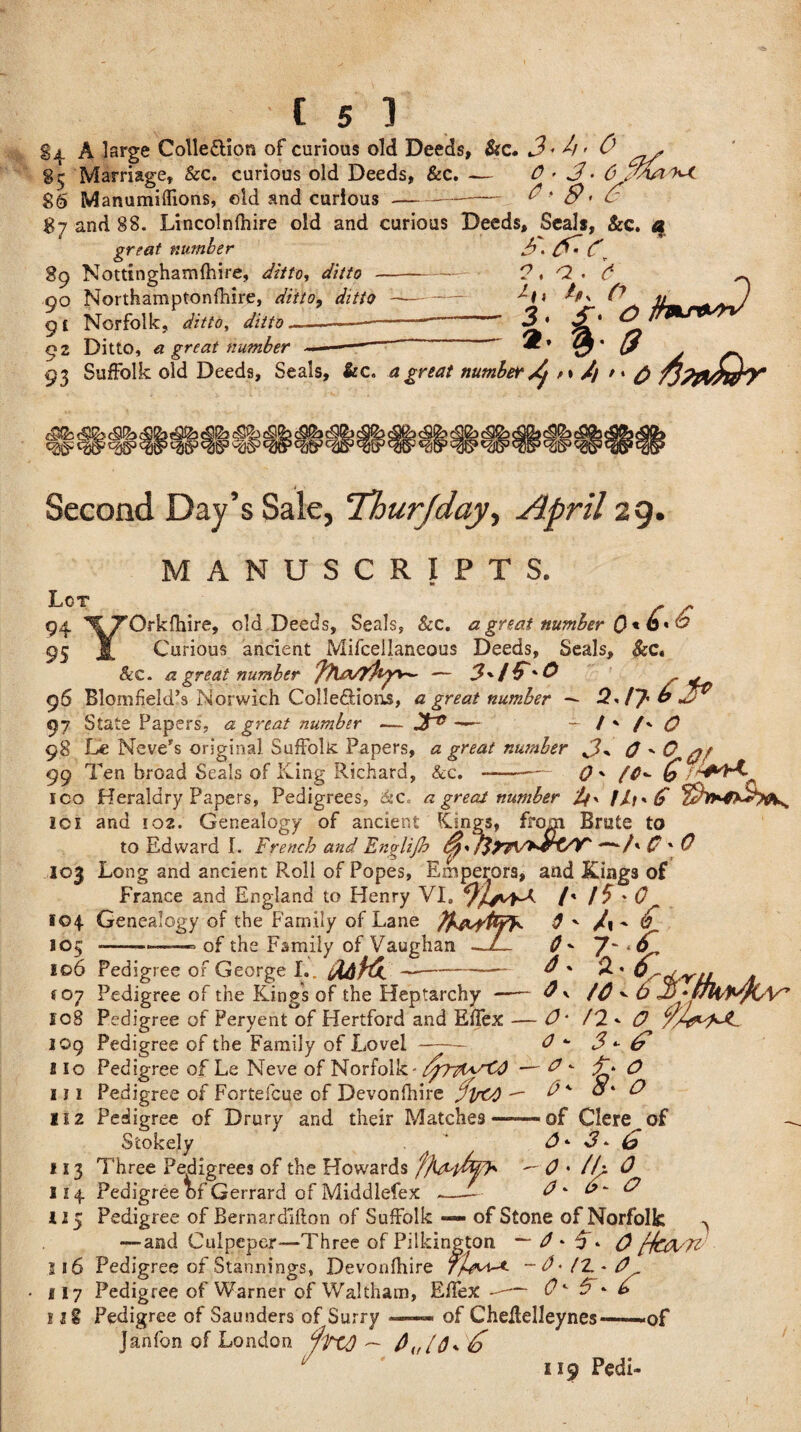 [ 5 ]
84 A large Collection of curious old Deeds, &c. 3 . 4 . 0
85 Marriage, &c. curious old Deeds, &c. — 0 . 3 . 6
86 Manumiſſions, old and curious — 0 . 8 . 6
87 and 88. Lincolnſhire old and curious Deeds, Seals, &c. a
great number 5 . 5 . 0
89 Nottinghamſhire, ditto, ditto — 2 . 2 . 0
90 Northamptonſhire, ditto, ditto — 4 . 4 . 0
91 Norfolk, ditto, ditto — 3 . 5 . 0
92 Ditto, a great number — 2 . 9 . 0
93 Suffolk old Deeds, Seals, &c. a great number 4 . 4 . 0
Second Day's Sale, Thurſday, April 29.
MANUSCRIPTS.
Lot
94 YOrkſhire, old Deeds, Seals, &c. a great number 0 . 6 . 6
95 Curious ancient Miſcellaneous Deeds, Seals, &c.
&c. a great number — 3 . 15 . 0
96 Blomfield's Norwich Collections, a great number — 2 . 17 . 6 Do
97 State Papers, a great number — Do — 1 . 1 . 0
98 Le Neve's original Suffolk Papers, a great number 3 . 0 . 0
99 Ten broad Seals of King Richard, &c. — 0 . 10 . 6
100 Heraldry Papers, Pedigrees, &c. a great number 4 . 14 . 6
101 and 102. Genealogy of ancient Kings, from Brute to
to Edward I. French and Engliſh — 1 . 0 . 0
103 Long and ancient Roll of Popes, Emperors, and Kings of
France and England to Henry VI. 1 . 15 . 0
104 Genealogy of the Family of Lane 0 . 4 . 6
105 — of the Family of Vaughan — 0 . 7 . 6
106 Pedigree of George I. — 0 . 2 . 6
107 Pedigree of the Kings of the Heptarchy — 0 . 10 . 6
108 Pedigree of Peryent of Hertford and Eſſex — 0 . 12 . 0
109 Pedigree of the Family of Lovel — 0 . 3 . 6
110 Pedigree of Le Neve of Norfolk — 0 . 5 . 0
111 Pedigree of Forteſcue of Devonſhire — 0 . 8 . 0
112 Pedigree of Drury and their Matches — of Clere of
Stokely 0 . 3 . 6
113 Three Pedigrees of the Howards — 0 . 11 . 0
114 Pedigree of Gerrard of Middleſex — 0 . 6 . 0
115 Pedigree of Bernardiſton of Suffolk — of Stone of Norfolk
—and Culpeper—Three of Pilkington — 0 . 5 . 0
116 Pedigree of Stannings, Devonſhire — 0 . 12 . 0
117 Pedigree of Warner of Waltham, Eſſex — 0 . 5 . 6
118 Pedigree of Saunders of Surry — of Cheſtelleynes —of
Janſon of London — 0 . 10 . 6
119 Pedi-